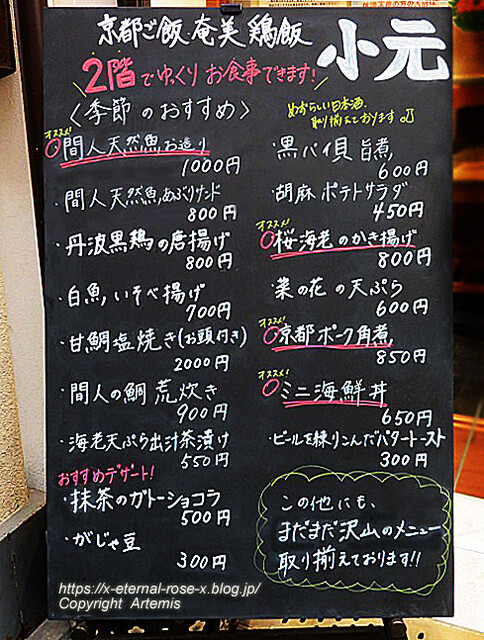 京都ご飯 奄美鶏飯
小元
2階でゆっくりお食事できます!
〈季節のおすすめ〉
めずらしい日本酒、
取り揃えております♪
オススメ!
○間人天然魚お造り
1000円
・間人天然魚あぶりサンド
800円
・丹波黒鶏の唐揚げ
800円
・白魚いそべ揚げ
700円
・甘鯛塩焼き(お頭付き)
2000円
・間人の鯛荒炊き
900円
・海老天ぷら出汁茶漬け
550円
おすすめデザート!
・抹茶のガトーショコラ
500円
・がじゃ豆
300円
・黒バイ貝旨煮
600円
・胡麻ポテトサラダ
450円
オススメ!
○桜海老のかき揚げ
800円
・菜の花の天ぷら
600円
オススメ!
○京都ポーク角煮
850円
オススメ!
○ミニ海鮮丼
650円
・ビールを練りこんだバタートースト
300円
この他にも、
まだまだ沢山のメニュー
取り揃えております!!
https://x-eternal-rose-x.blog.jp/
Copyright Artemis